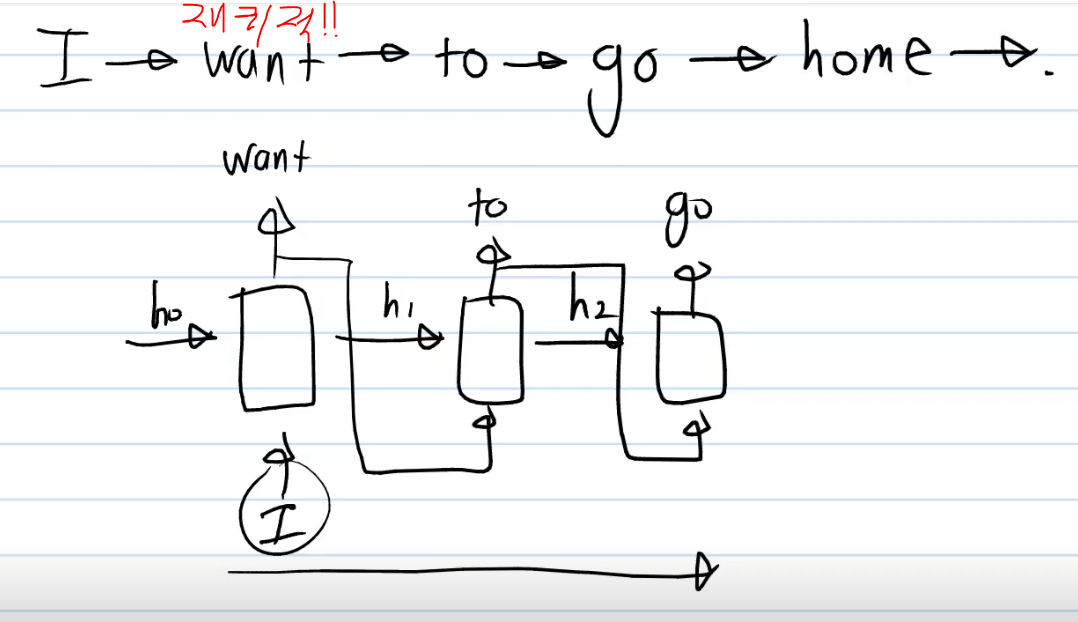 재귀적!!
I → want → to → go → home → .
want
to
go
h₀
h₁
h₂
I